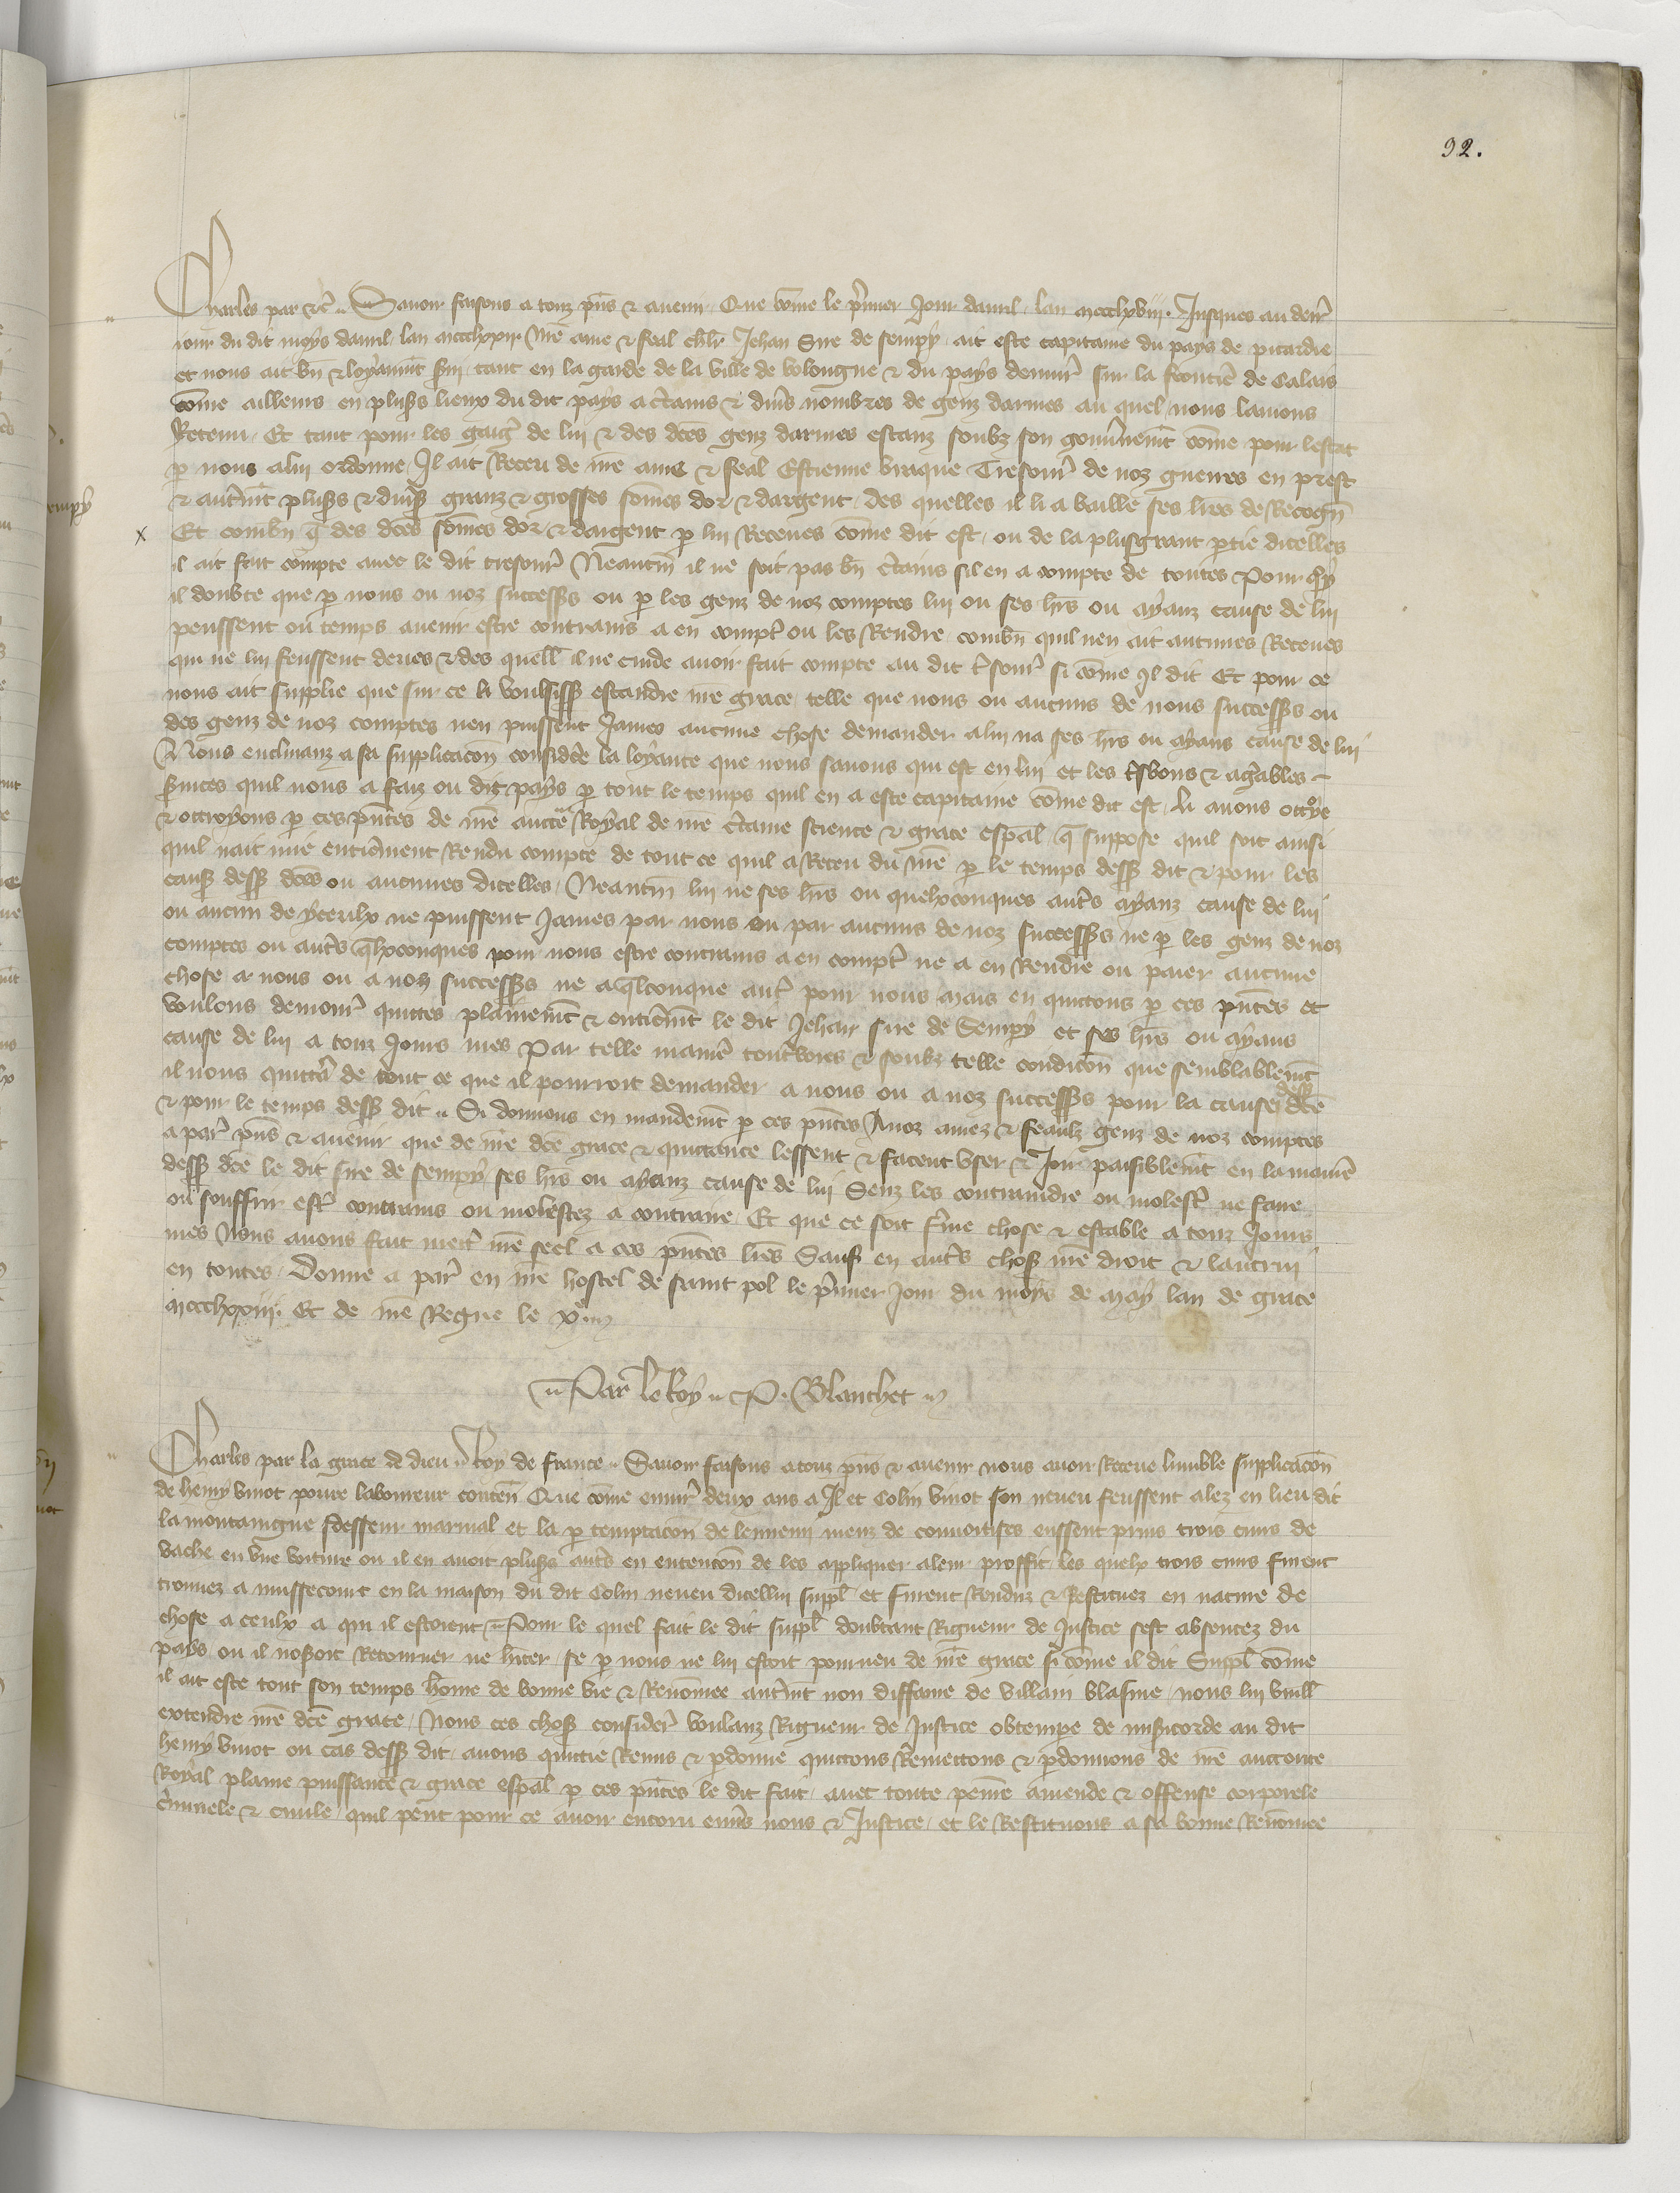 92.
Charles par &c̃ . Savoir faisons a touz p̃ns & avenir Que cõme le p̃mier Jour davril lan mccclxviii. Jusques au den̄r
jour du dit moys davril lan mccclxxiii. nr̃e ame & feal chlr̃ Jehan Sire de sempy ait este capitaine du pays de picardie
et nous ait bñ & loyaumt̃ s̃vi tant en la garde de la ville de boloigne & du pays denvir̃ sur la frontiẽ de Calais
cõme ailleurs en plus̃s lieux du dit pays a c̃tains & diṽs nombres de genz darmes au quel nous lavions
Retenu . Et tant pour les gaig̃ de lui & des dc̃es genz darmes estanz soubz son gouv̾nemt̃ cõme pour lestat
p nous a lui ordonne Il ait Receu de nr̃e ame & feal Estienne braque Tresorr̃ de noz guerres en prest
& autremt̃ plus̃s & div̾ses granz & grosses sõmes dor & dargent, des quelles il li a baille ses lr̃es de Recogñ
x Et combñ q̃ des dc̃es sõmes dor & dargent p lui Receues cõme dit est, ou de la plusgrant p̱tie dicelles
il ait fait compte avec le dit tresorr̃ Neantm̃ il ne soit pas bñ c̃tains sil en a compte de toutes Pour quoy
il doubte que p nous ou noz success̃s ou p les genz de noz comptes lui ou ses hr̃s ou ayanz cause de lui
peussent ou temps avenir estre contrains a en compt̾ ou les Rendre combñ quil nen ait aucunes Receues
qui ne lui feussent deues & des quell̃ il ne cuide avoir fait compte au dit t̾sorr̃ si cõme Il dit Et pour ce
nous ait supplie que sur ce li voulsiss̃ estandre nr̃e grace, telle que nous ou aucuns de nous success̃s ou
des genz de noz comptes nen puissent James aucune chose demander a lui na ses hr̃s ou ayans cause de lui
Nous enclinanz a sa supplicacõn considere la loyaute que nous savons qui est en lui et les t̾sbons & ag̾ables
s̾vices quil nous a faiz ou dit pays p tout le temps quil en a este capitaine cõme dit est, li avons ottroye
& ottroyons p ces p̃ntes de nr̃e aucte Royal de nr̃e c̾taine science & grace esp̃al, q̃ suppose quil soit ainsi
quil nait mie entierement Rendu compte de tout ce quil a Receu du nr̃e p le temps dess̃ dit & pour les
caus̃ dess̃ dc̃es ou aucunes dicelles, Neantm̃ lui ne ses hr̃s ou quelxconques aut̾s ayanz cause de lui
ou aucun de yceulx ne puissent James par nous ou par aucuns de noz success̃s ne p les genz de noz
comptes ou aut̾s q̃lxconques pour nous estre contrains a en compt̾ ne a en Rendre ou paier aucune
chose a nous ou a noz success̃s ne a q̃lconque aut̾ pour nous Mais en quictons p ces p̃ntes et
voulons demour̾ quictes plainemt̃ & entieremt̃ le dit Jehan sire de Sempy et ses hr̃s ou ayans
cause de lui a touz Jours mes Par telle manier̃ toutevoies & soubz telle condicõn que semblablemt̃
il nous quicta de tout ce que il pourroit demander a nous ou a noz success̃s pour la cause dess̃ dc̃e
& pour le temps dess̃ dit . Si donnons en mandemt̃ p ces p̃ntes A noz amez & feaulx genz de noz comptes
a par̾ p̃ns & avenir que de nr̃e dc̃e grace & quictance lessent & facent user & Joir paisiblemt̃ en la manier̃
dess̃ dc̃e le dit sire de sempy ses hr̃s ou ayanz cause de lui Senz les contraindre ou molest̾ ne faire
ou souffrir est̾ contrains ou molestez a contraire. Et que ce soit f̾me chose & estable a touz Jours
mes Nous avons fait mett̾ nr̃e seel a ces p̃ntes lr̃es Sauf en aut̾s chos̃ nr̃e droit & lautrui
en toutes. Donne a par̾ en nr̃e hostel de saint pol le p̃mier Jour du moys de May lan de grace
mccclxxiii. Et de nr̃e Regne le x.e
Par le Roy . P. Blanchet
Charles par la grace de dieu Roy de france . Savoir faisons a touz p̃ns & avenir nous avoir Receue lumble supplicacõn
de henry vinot povre laboureur conteñ Que cõme envir̾ deux ans a Il et Colin vinot son neveu feussent alez en lieu dit
la montaingne desseur marnal et la p temptacõn de lennemi meuz de convoitises eussent prins trois cuirs de
vache en une voiture ou il en avoit plus̃s aut̾s en entencõn de les appliquer a leur proffit, les quelx trois cuirs furent
trouvez a mussecouit en la maison du dit Colin neveu dicellui suppl̃ et furent Renduz & Restituez en nature de
chose a ceulx a qui il estoient . Pour le quel fait le dit suppl̃ doubtant Rigueur de Justice sest absentez du
pays ou il nosoit Retourner ne hiter, se p nous ne lui estoit pourveu de nr̃e grace si cõme il dit Suppl̃ cõme
il ait este tout son temps hõme de bonne vie & Renõmee autremt̃ non diffame de villain blasme, nous lui vuill̃
extendre nr̃e dc̃e grace, Nous ces chos̃ consider̾ voulanz Rigueur de Justice obtemper de mis̾icorde au dit
henry vinot ou cas dess̃ dit, avons quictie Remis & p̱donne quictons Remettons & p̱donnons de nr̃e auctorite
Royal plaine puissance & grace esp̃al p ces p̃ntes le dit fait, avec toute peine amende & offense corporele
c̾minele & civile, quil peut pour ce avoir encoru env̾s nous & Justice, et le Restituons a sa bonne Renõmee